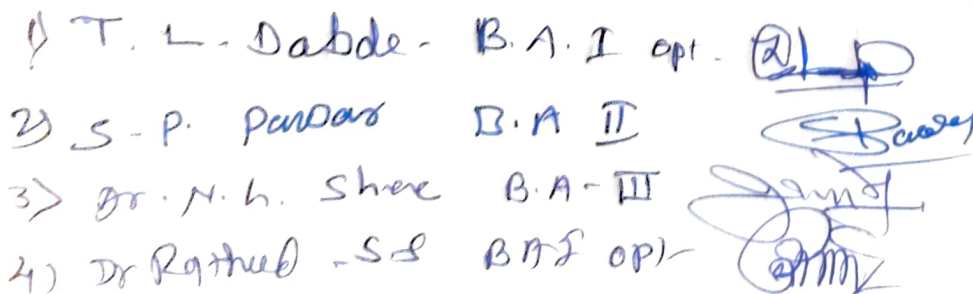 1) T. L. Dabde - B.A. I opt. (2)
2) S. P. Pawar B.A II
3) Dr. N. h. Shere B.A - III
4) Dr Rathod . S S B A I opt-